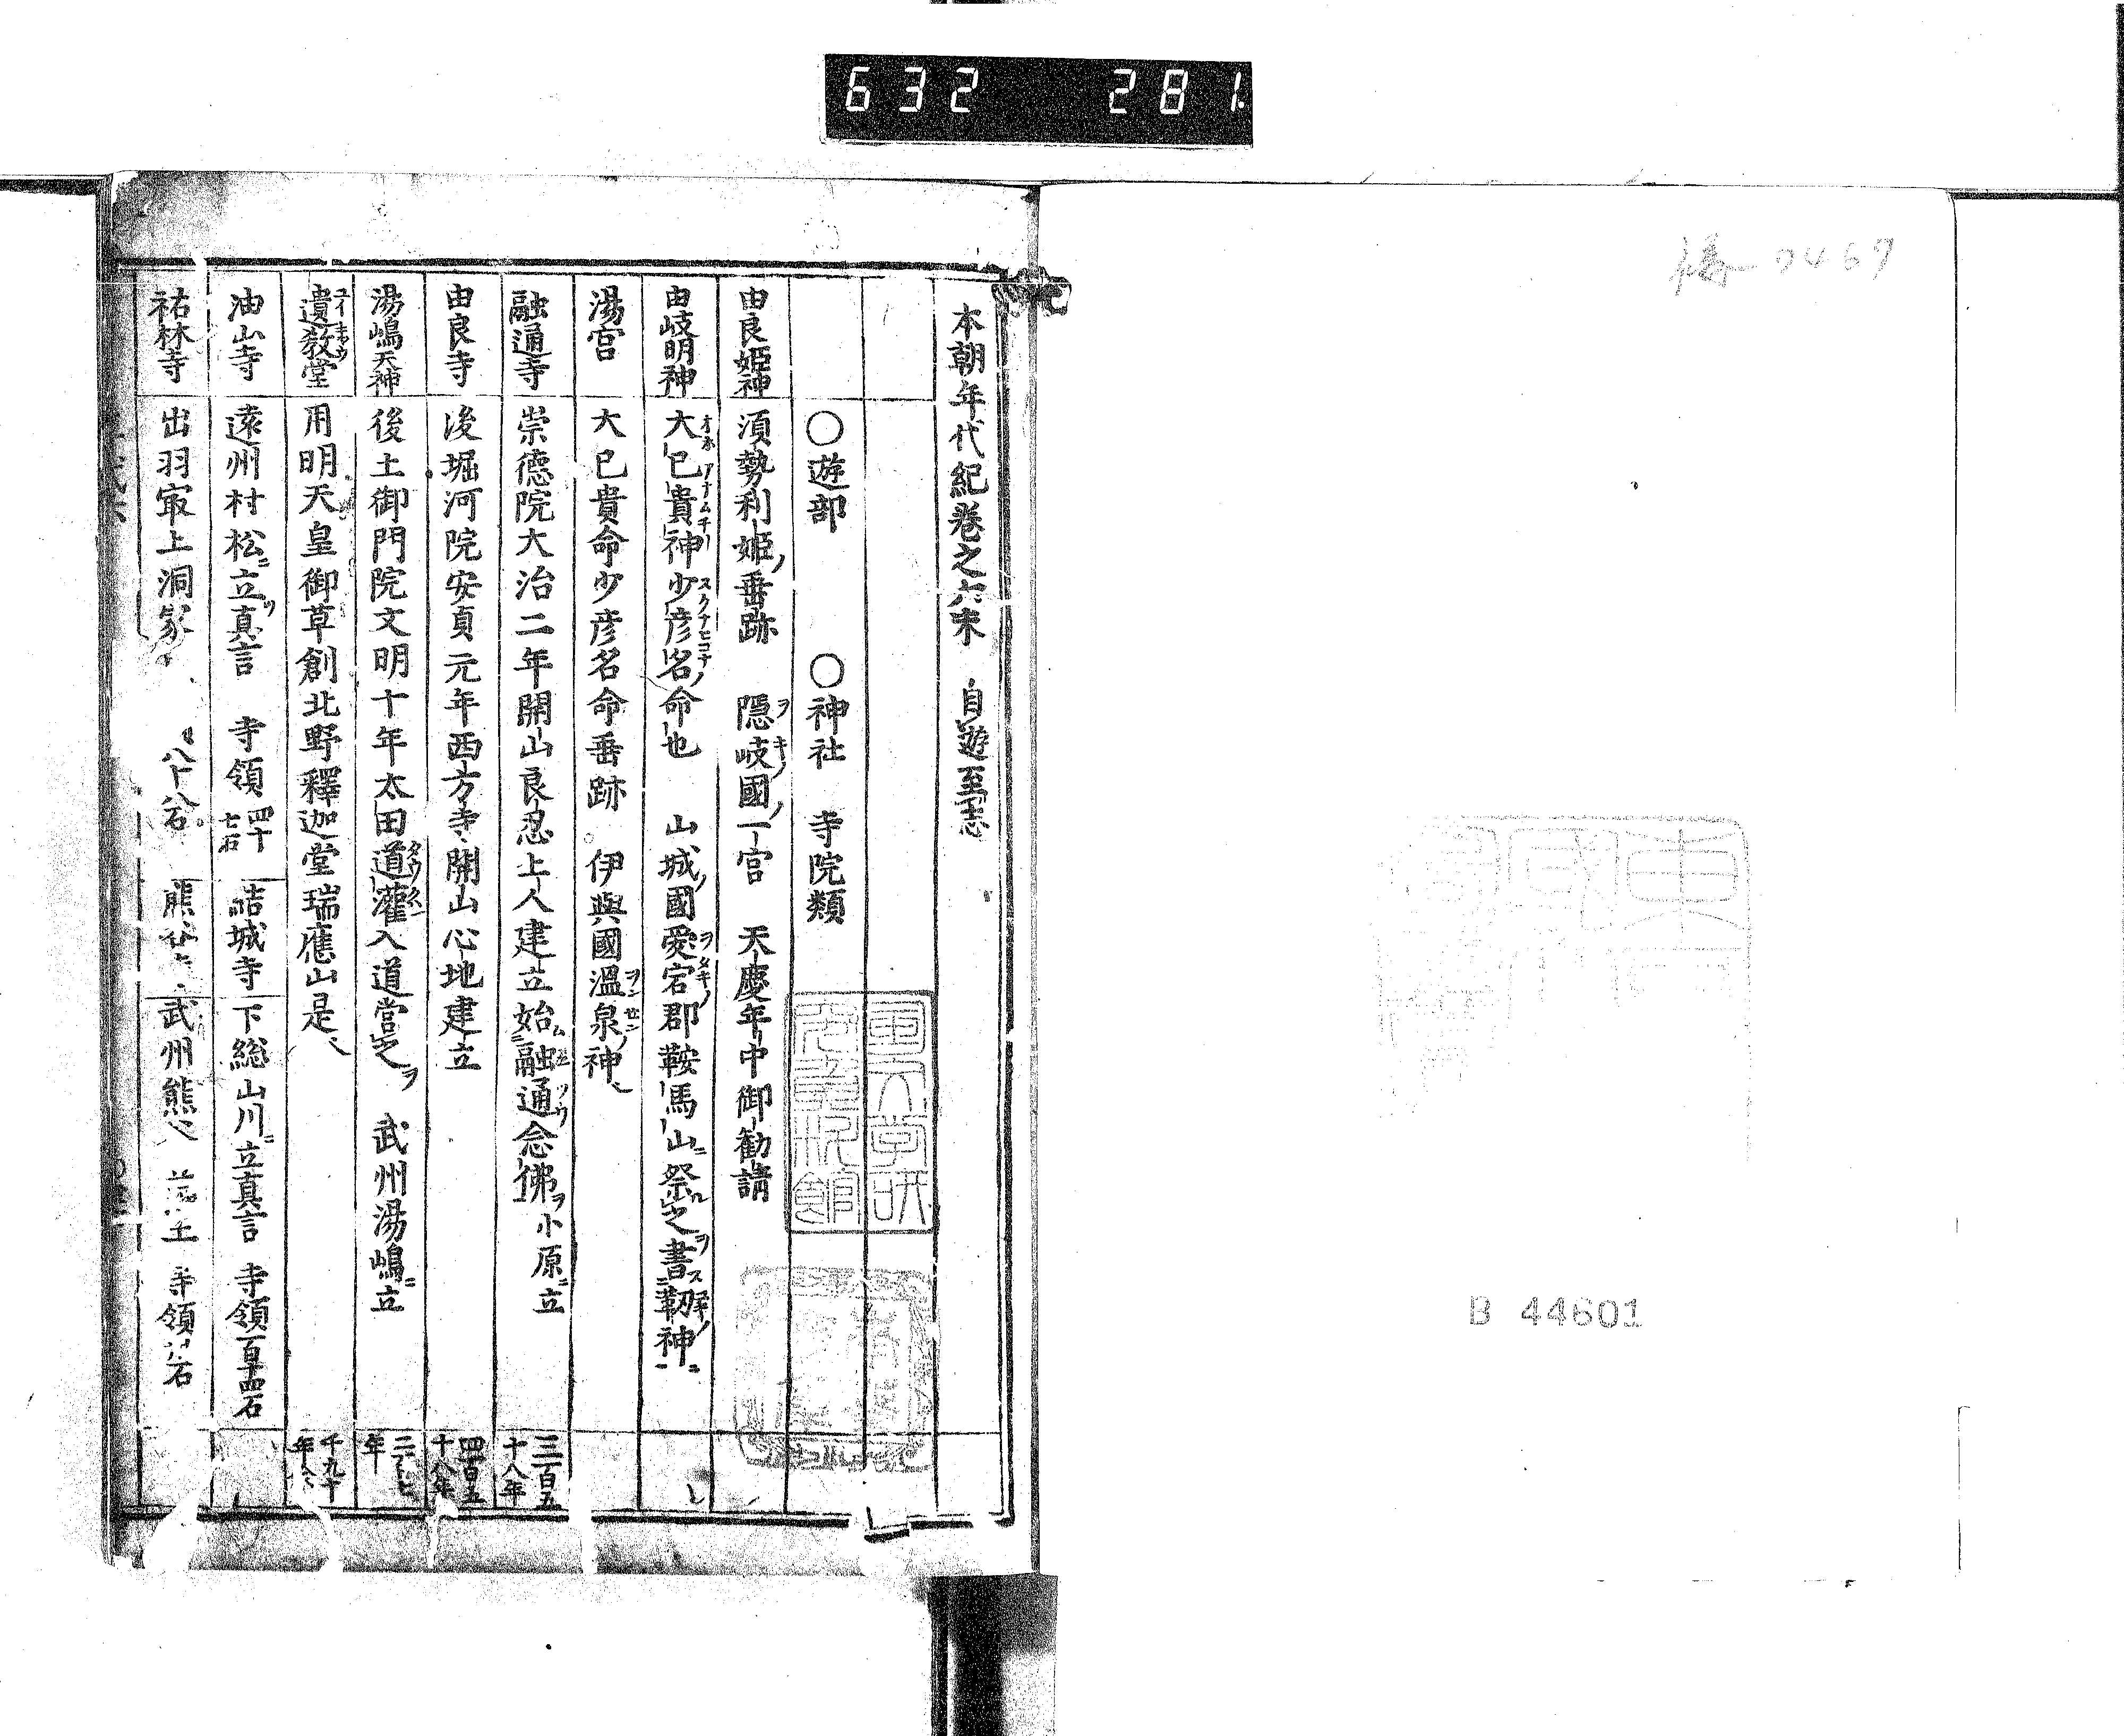 632 281
7467
B 44601
本朝年代紀巻之六末 自遊至志
〇遊部 〇神社 寺院類
由良姫神 須勢利姫ノ垂跡 隠岐國ノ一宮 天慶年中御勧請
由岐明神 大己貴神少彦名ノ命也 山城ノ國愛宕郡鞍馬山ニ祭之書靱神ニ
湯宮 大已貴命少彦名命垂跡 伊與國溫泉神
融通寺 崇德院大治二年開山良忍上人建立始融通念佛ヲ小原ニ立 三百五十八年
由良寺 後堀河院安貞元年西方寺開山心地建立 四百五十八年
湯嶋天神 後土御門院文明十年太田道灌入道営之ヲ 武州湯嶋ニ立
遺教堂 用明天皇御草創北野釋迦堂瑞應山是 千九十
油山寺 遠州村松ニ立真言 寺領四十七石 結城寺 下総山川ニ立真言 寺領百十四石
祐林寺 出羽㝡上洞家 八十八石 熊 武州熊 寺領 石